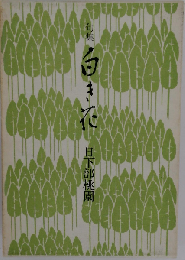 句集
白き花
日下部桃園